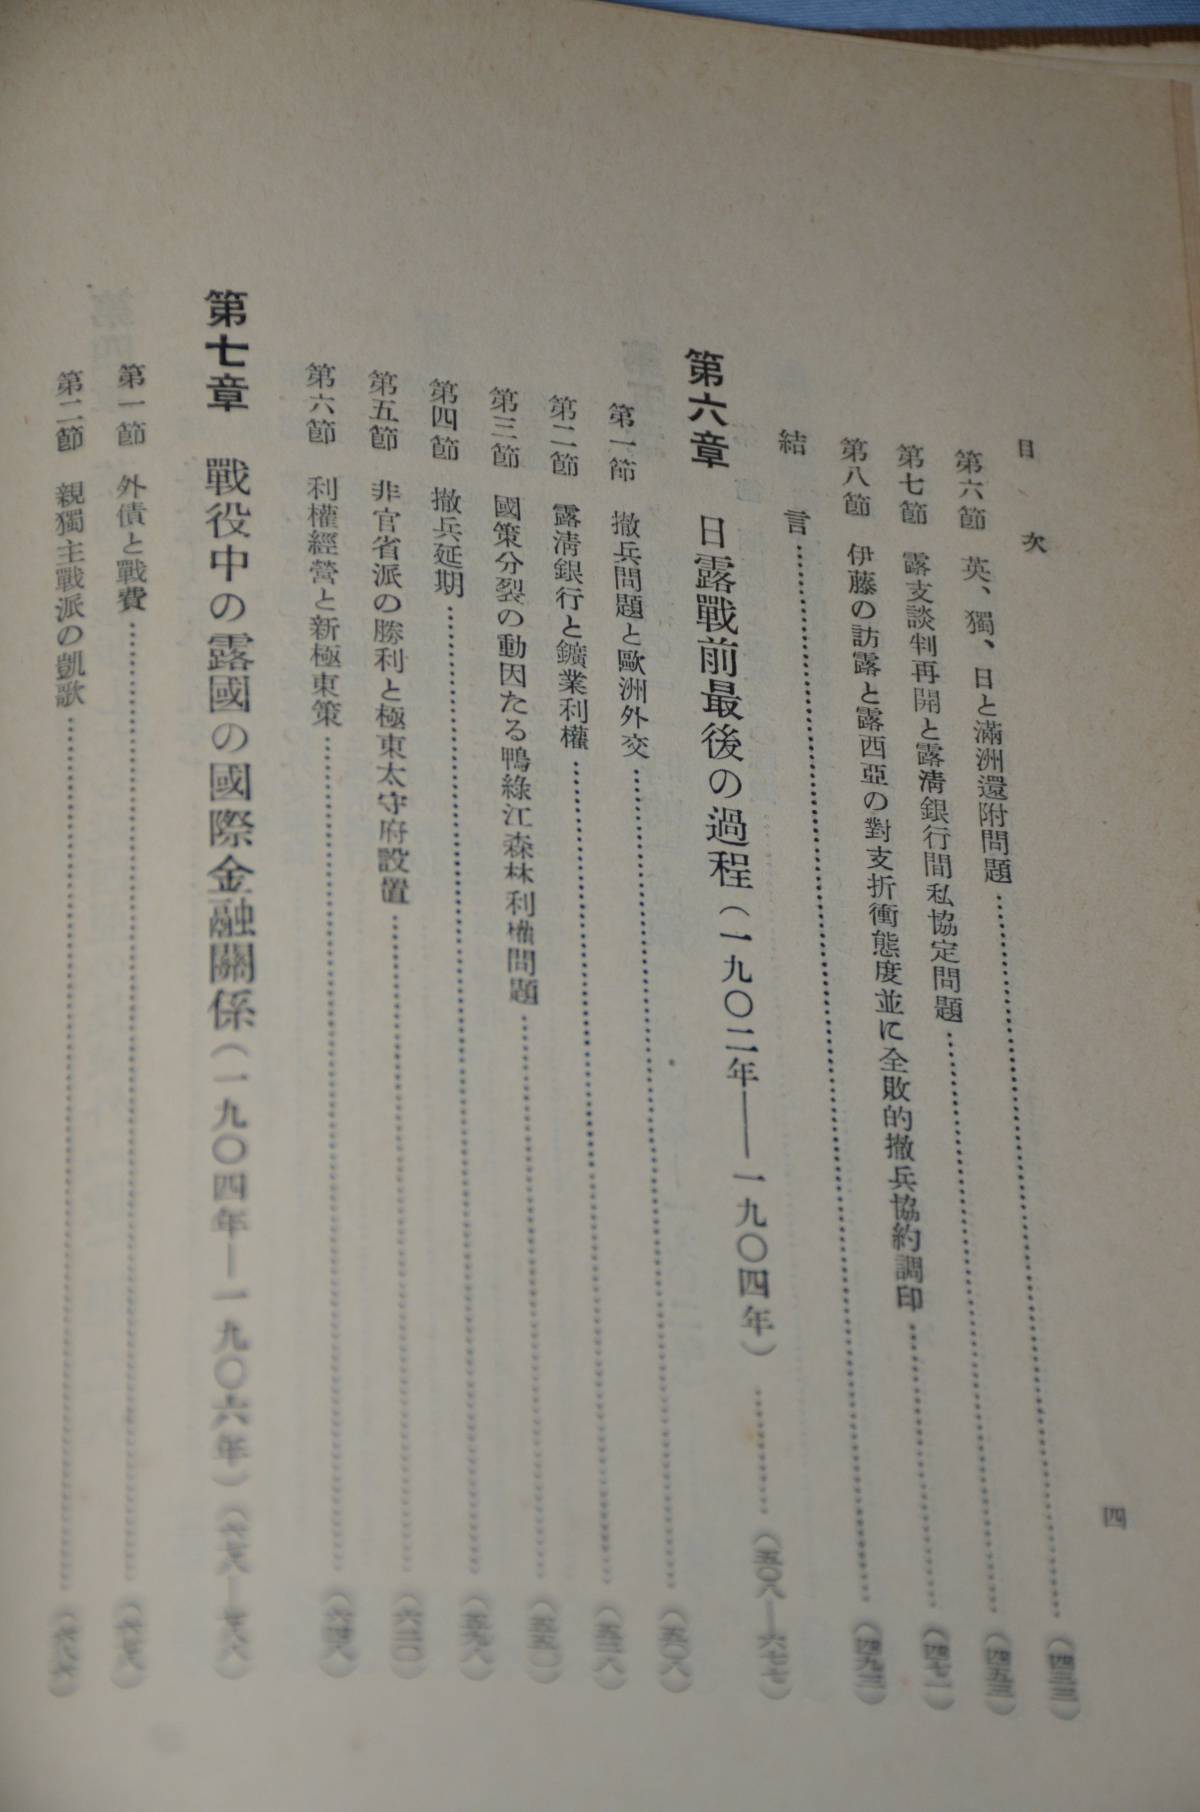 目次
四
第六節　英、獨、日と滿洲還附問題……（四三三）
第七節　露支談判再開と露淸銀行間私協定問題……（四五三）
第八節　伊藤の訪露と露西亞の對支折衝態度並に全敗的撤兵協約調印……（四七一）
結言……（四九三）
第六章　日露戰前最後の過程（一九〇二年——一九〇四年）……（五〇八—六七七）
第一節　撤兵問題と歐洲外交……（五〇八）
第二節　露淸銀行と鑛業利權……（五二八）
第三節　國策分裂の動因たる鴨綠江森林利權問題……（五五〇）
第四節　撤兵延期……（五九八）
第五節　非官省派の勝利と極東太守府設置……（六二〇）
第六節　利權經營と新極東策……（六四八）
第七章　戰役中の露國の國際金融關係（一九〇四年—一九〇六年）
第一節　外債と戰費……（六七八）
第二節　親獨主戰派の凱歌……